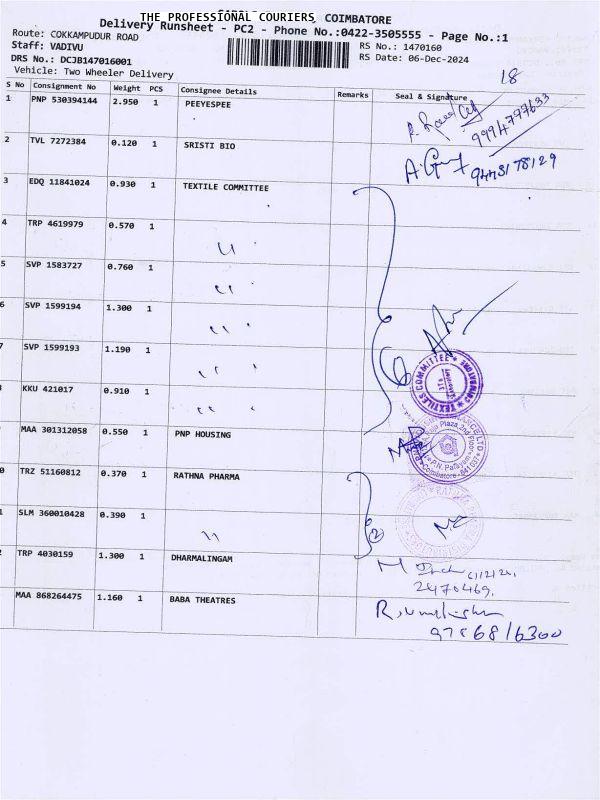 THE PROFESSIONAL COURIERS, COIMBATORE
Delivery Runsheet - PC2 - Phone No.:0422-3505555 - Page No.:1
Route: COKKAMPUDUR ROAD
Staff: VADIVU
RS No.: 1470160
DRS No.: DCJB147016001
RS Date: 06-Dec-2024
Vehicle: Two Wheeler Delivery
18
S No Consignment No Weight PCS Consignee Details Remarks Seal & Signature
1 PNP 530394144 2.950 1 PEEYESPEE
9994797633
2 TVL 7272384 0.120 1 SRISTI BIO
9443178129
3 EDQ 11841024 0.930 1 TEXTILE COMMITTEE
4 TRP 4619979 0.570 1 "
5 SVP 1583727 0.760 1 "
6 SVP 1599194 1.300 1 "
7 SVP 1599193 1.190 1 "
KKU 421017 0.910 1 "
TEXTILES COMMITTEE ★ COIMBATORE
MAA 301312058 0.550 1 PNP HOUSING
Plaza, 2nd
P.N. Palayam
Coimbatore - 641037
0 TRZ 51160812 0.370 1 RATHNA PHARMA
SLM 360010428 0.390 1 "
2
TRP 4030159 1.300 1 DHARMALINGAM
6/12/24.
2470469.
MAA 868264475 1.160 1 BABA THEATRES
97868/6300